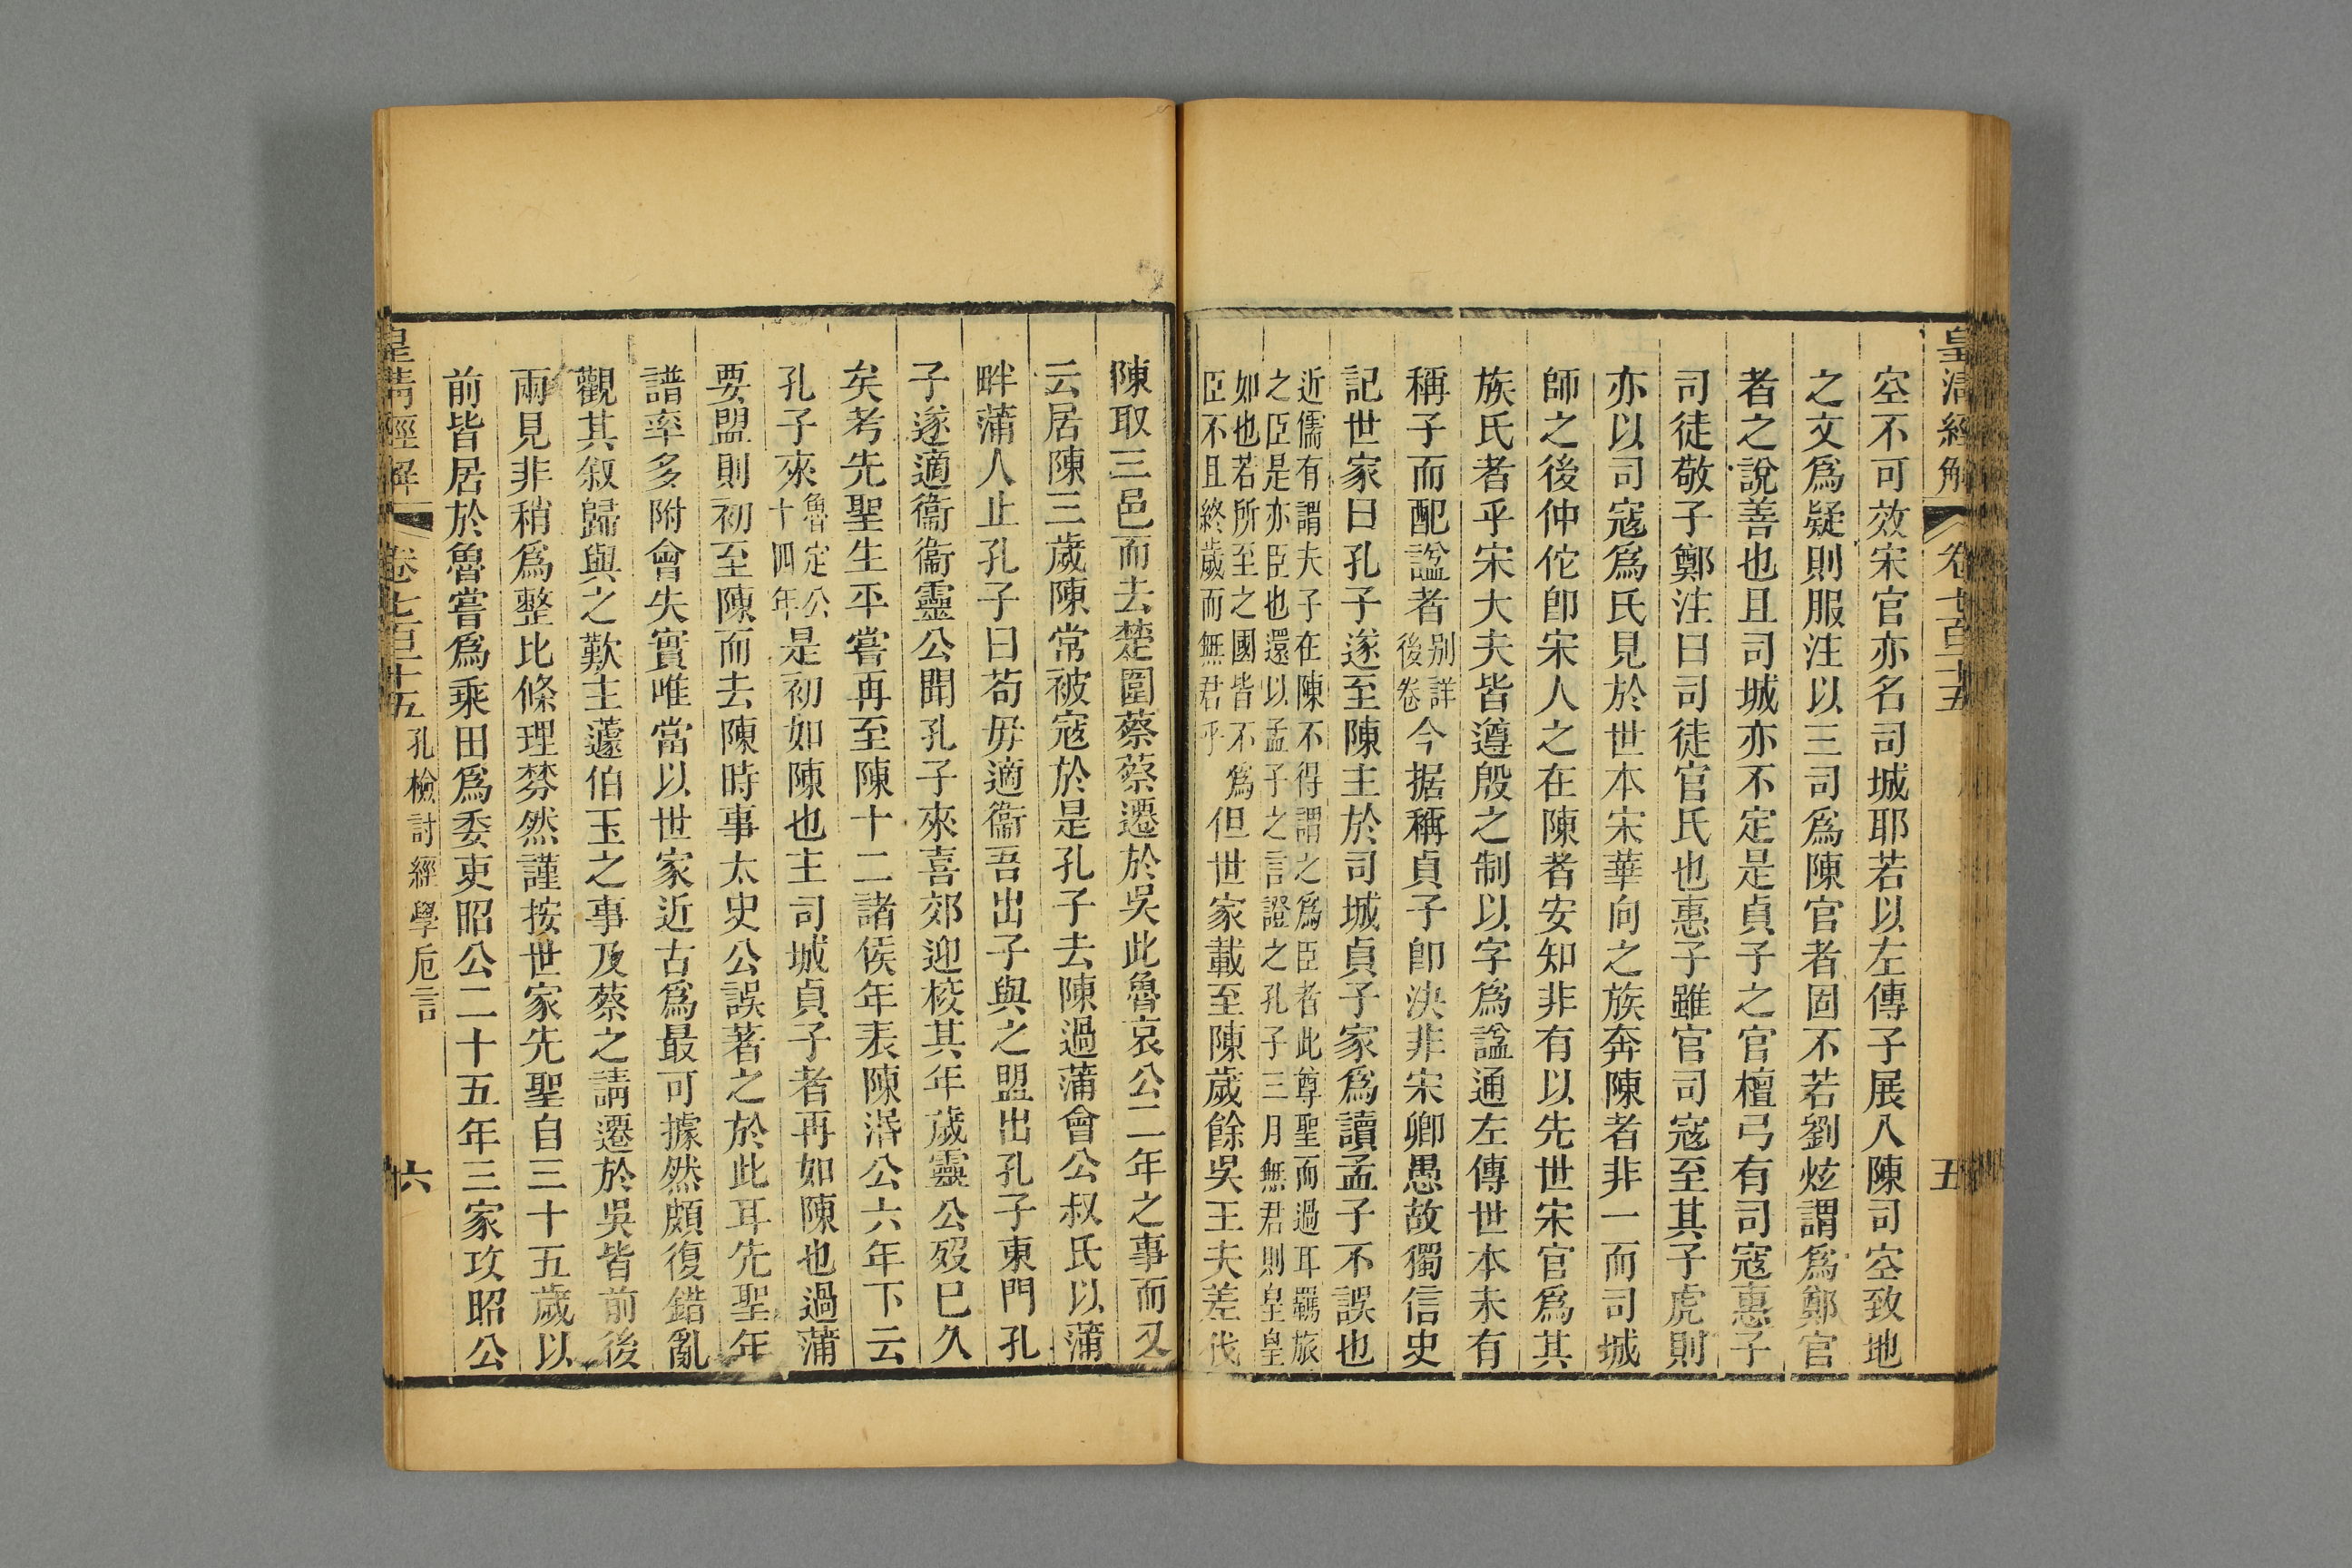 皇清經解 卷七百十五 五
空不可效宋官亦名司城耶若以左傳子展入陳司空致地
之文爲疑則服注以三司爲陳官者固不若劉炫謂爲鄭官
者之說善也且司城亦不定是貞子之官檀弓有司寇惠子
司徒敬子鄭注曰司徒官氏也惠子雖官司寇至其子虎則
亦以司寇爲氏見於世本宋華向之族奔陳者非一而司城
師之後仲佗卽宋人之在陳者安知非有以先世宋官爲其
族氏者乎宋大夫皆遵殷之制以字爲諡通左傳世本未有
稱子而配諡者别詳後卷今据稱貞子卽決非宋卿愚故獨信史
記世家曰孔子遂至陳主於司城貞子家爲讀孟子不誤也
近儒有謂夫子在陳不得謂之爲臣者此尊聖而過耳羈旅
之臣是亦臣也還以孟子之言證之孔子三月無君則皇皇
如也若所至之國皆不爲
臣不且終歲而無君乎
但世家載至陳歲餘吳王夫差伐
陳取三邑而去楚圍蔡蔡遷於吳此魯哀公二年之事而又
云居陳三歲陳常被寇於是孔子去陳過蒲會公叔氏以蒲
畔蒲人止孔子曰苟毋適衞吾出子與之盟出孔子東門孔
子遂適衞衞靈公聞孔子來喜郊迎校其年歲靈公歿已久
矣考先聖生平嘗再至陳十二諸侯年表陳湣公六年下云
孔子來魯定公十四年是初如陳也主司城貞子者再如陳也過蒲
要盟則初至陳而去陳時事太史公誤著之於此耳先聖年
譜率多附會失實唯當以世家近古爲最可據然頗復錯亂
觀其叙歸與之歎主蘧伯玉之事及蔡之請遷於吳皆前後
兩見非稍爲整比條理棼然謹按世家先聖自三十五歲以
前皆居於魯嘗爲乘田爲委吏昭公二十五年三家攻昭公
皇清經解 卷七百十五 孔檢討經學卮言 六